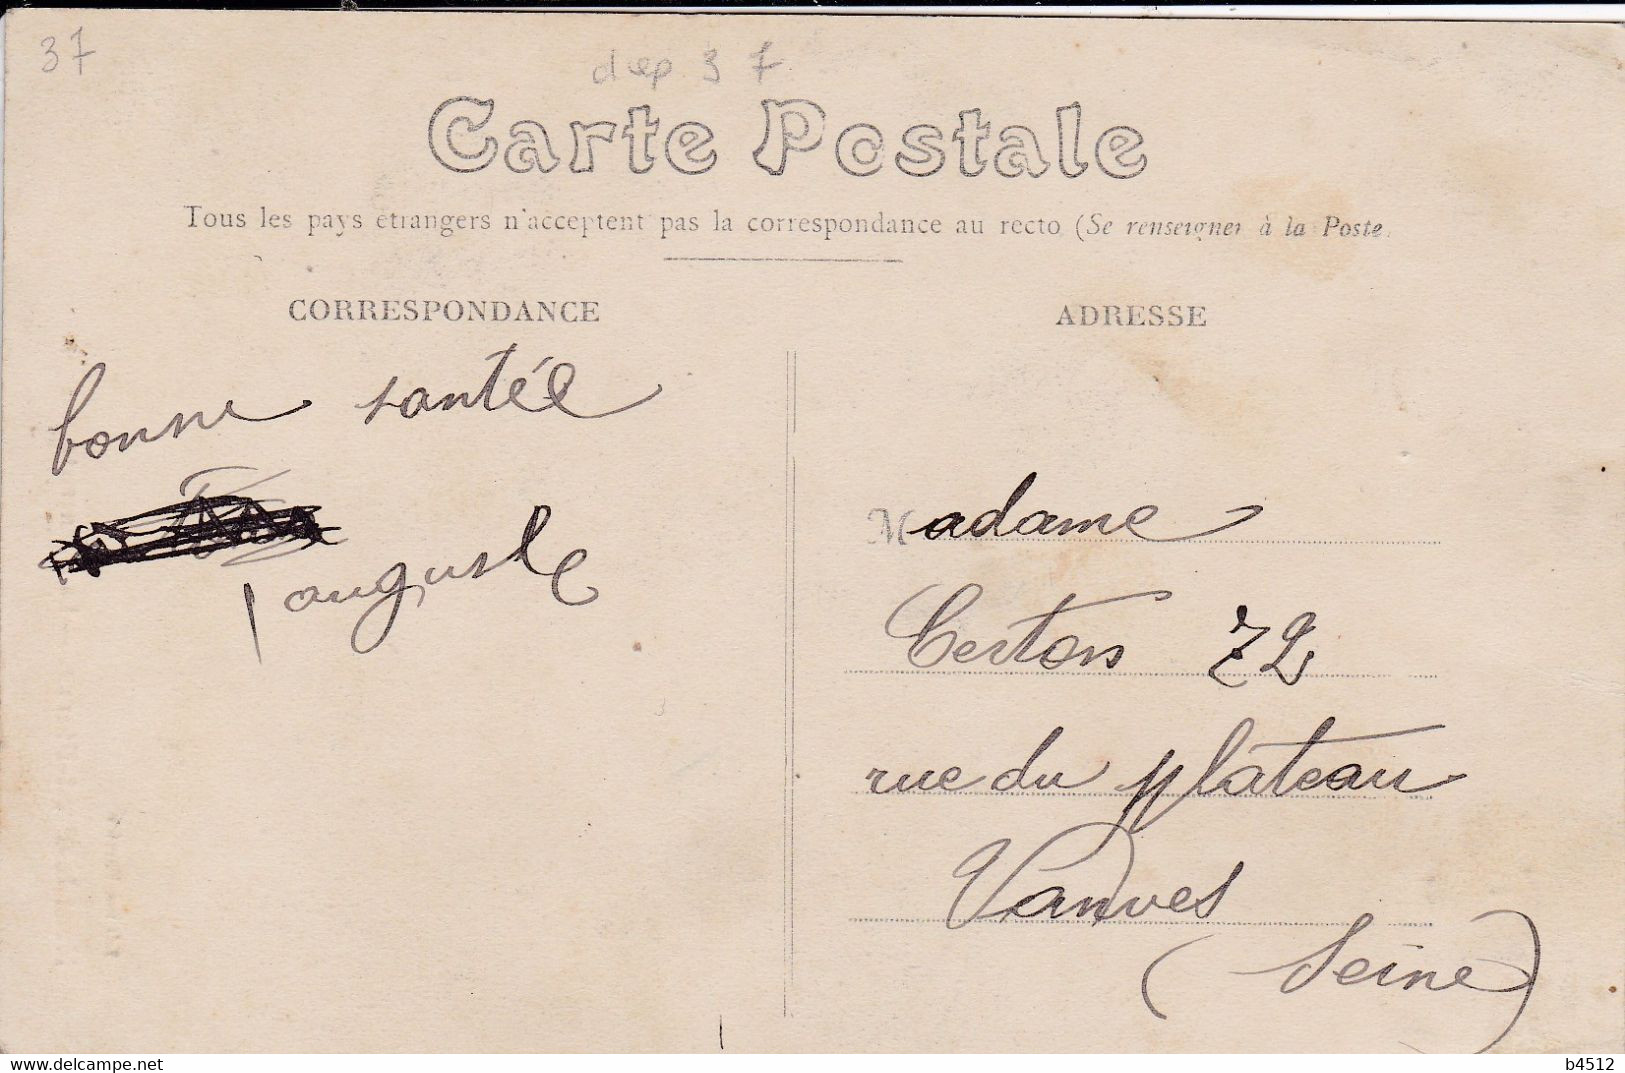 37
dep 37
Carte Postale
Tous les pays étrangers n'acceptent pas la correspondance au recto (Se renseigner à la Poste
CORRESPONDANCE
bonne santée
auguste
ADRESSE
Madame
Certons 72
rue du plateau
Vanves
(Seine)
b4512